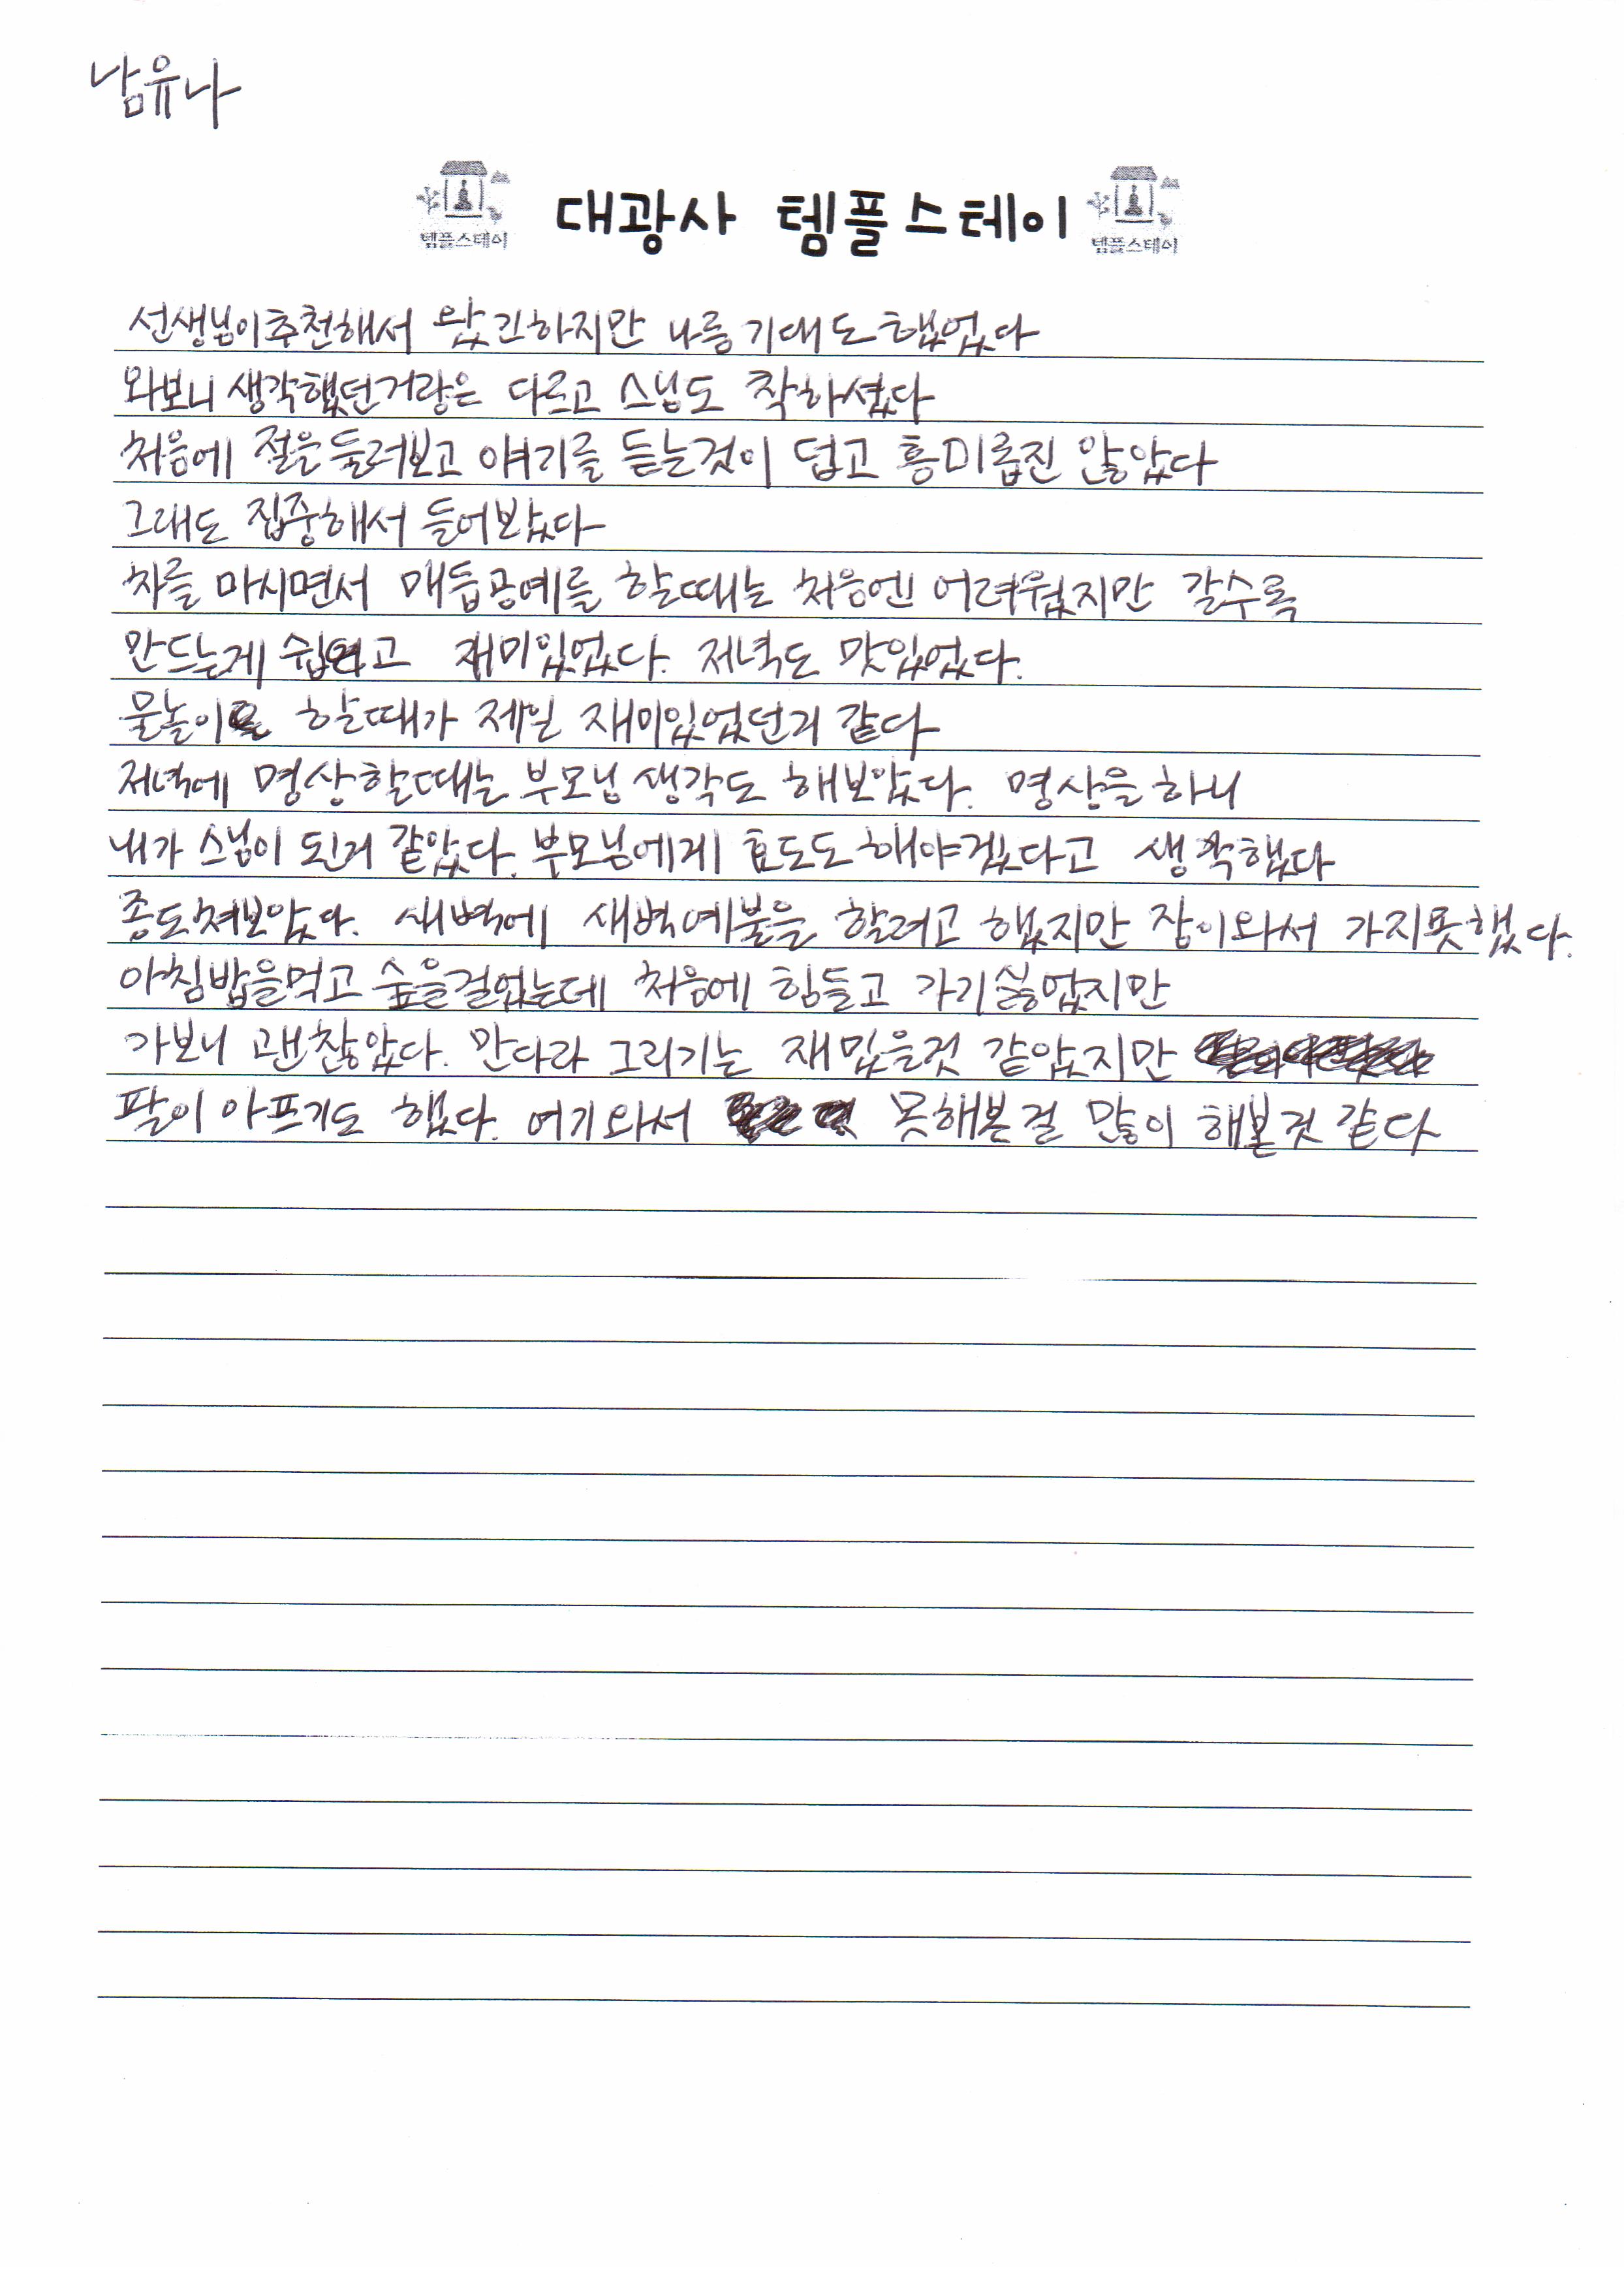 남유나
템플스테이 대광사 템플스테이 템플스테이
선생님이추천해서 왔긴하지만 나름기대도했었다
와보니 생각했던거랑은 다르고 스님도 착하셨다
처음에 절은둘러보고 얘기를 듣는것이 덥고 흥미롭진 않았다
그래도 집중해서 들어봤다
차를 마시면서 매듭공예를 할때는 처음엔 어려웠지만 갈수록
만드는게 쉽고 재미있었다. 저녁도 맛있었다.
물놀이 할때가 제일 재미있었던거 같다
저녁에 명상할때는 부모님생각도 해보았다. 명상을하니
내가 스님이 된거 같았다. 부모님에게 효도도해야겠다고 생각했다
종도쳐보았다. 새벽에 새벽예불을 할려고 했지만 잠이와서 가지못했다.
아침밥을먹고 숲을걸었는데 처음에 힘들고 가기싫었지만
가보니 괜찮았다. 만다라 그리기는 재밌을것 같았지만
팔이 아프기도 했다. 여기와서 못해본걸 많이 해본것 같다